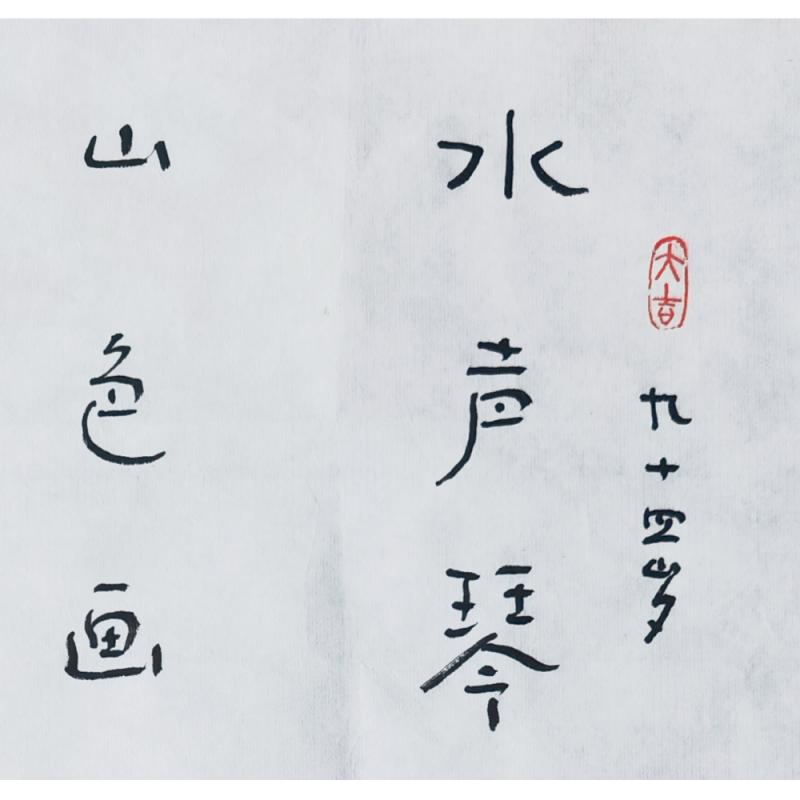 大吉
九十四岁
水声琴
山色画